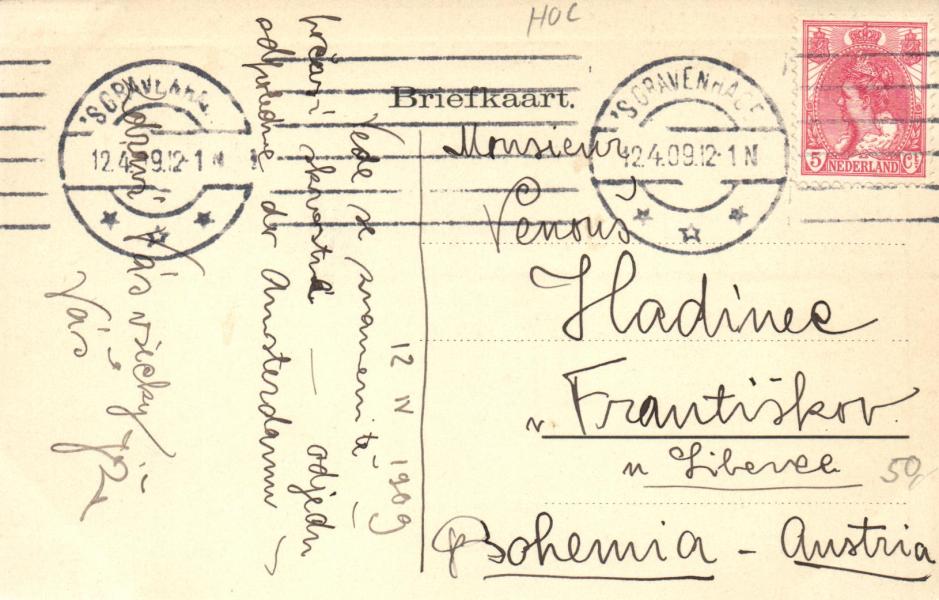 HOC
Briefkaart.
'S GRAVENHAGE
12.4.09.12-1 N
'S GRAVENHAGE
12.4.09.12-1 N
5 Ct
NEDERLAND
Monsieur
Venouš
Hadinec
v Františkov
u Liberce
Bohemia - Austria
50,-
12 IV 1909
Vede se znamenitě
odjedu
odpoledne do Amsterdamu
Zdraví Vás všecky
Váš